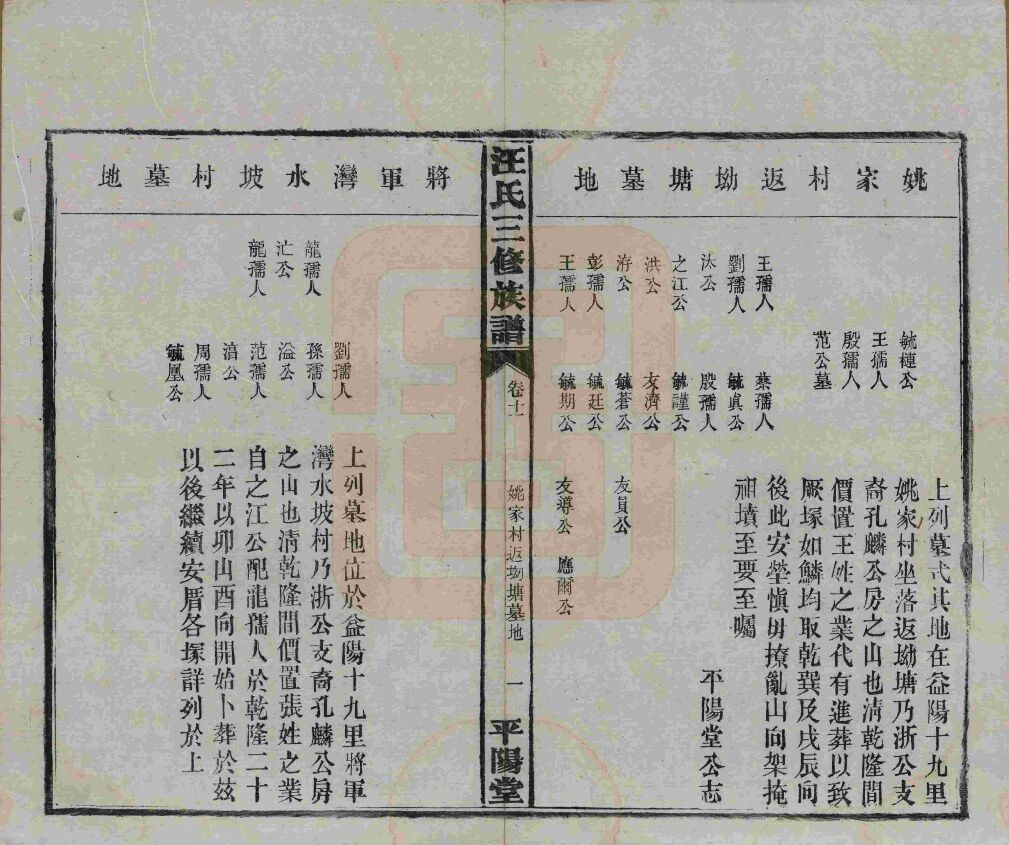 姚家村返坳塘墓地
毓槤公
王孺人
殷孺人
范公墓
王孺人
劉孺人
汰公
之江公
洪公
洊公
彭孺人
王孺人
蔡孺人
毓眞公
殷孺人
毓謹公
友濟公
毓蒼公
毓廷公
毓期公
友員公
友導公 應爾公
上列墓式其地在益陽十九里
姚家村坐落返坳塘乃浙公支
裔孔麟公房之山也淸乾隆間
價置王姓之業代有進葬以致
厥塚如鱗均取乾巽及戌辰向
後此安塋愼毋撩亂山向架掩
祖墳至要至囑
平陽堂公志
汪氏三修族譜
卷十一
姚家村返坳塘墓地
一
平陽堂
將軍灣水坡村墓地
龍孺人
汇公
龍孺人
劉孺人
孫孺人
溢公
范孺人
涫公
周孺人
毓凰公
上列墓地位於益陽十九里將軍
灣水坡村乃浙公支裔孔麟公房
之山也淸乾隆間價置張姓之業
自之江公配龍孺人於乾隆二十
二年以卯山酉向開始卜葬於玆
以後繼續安厝各塚詳列於上